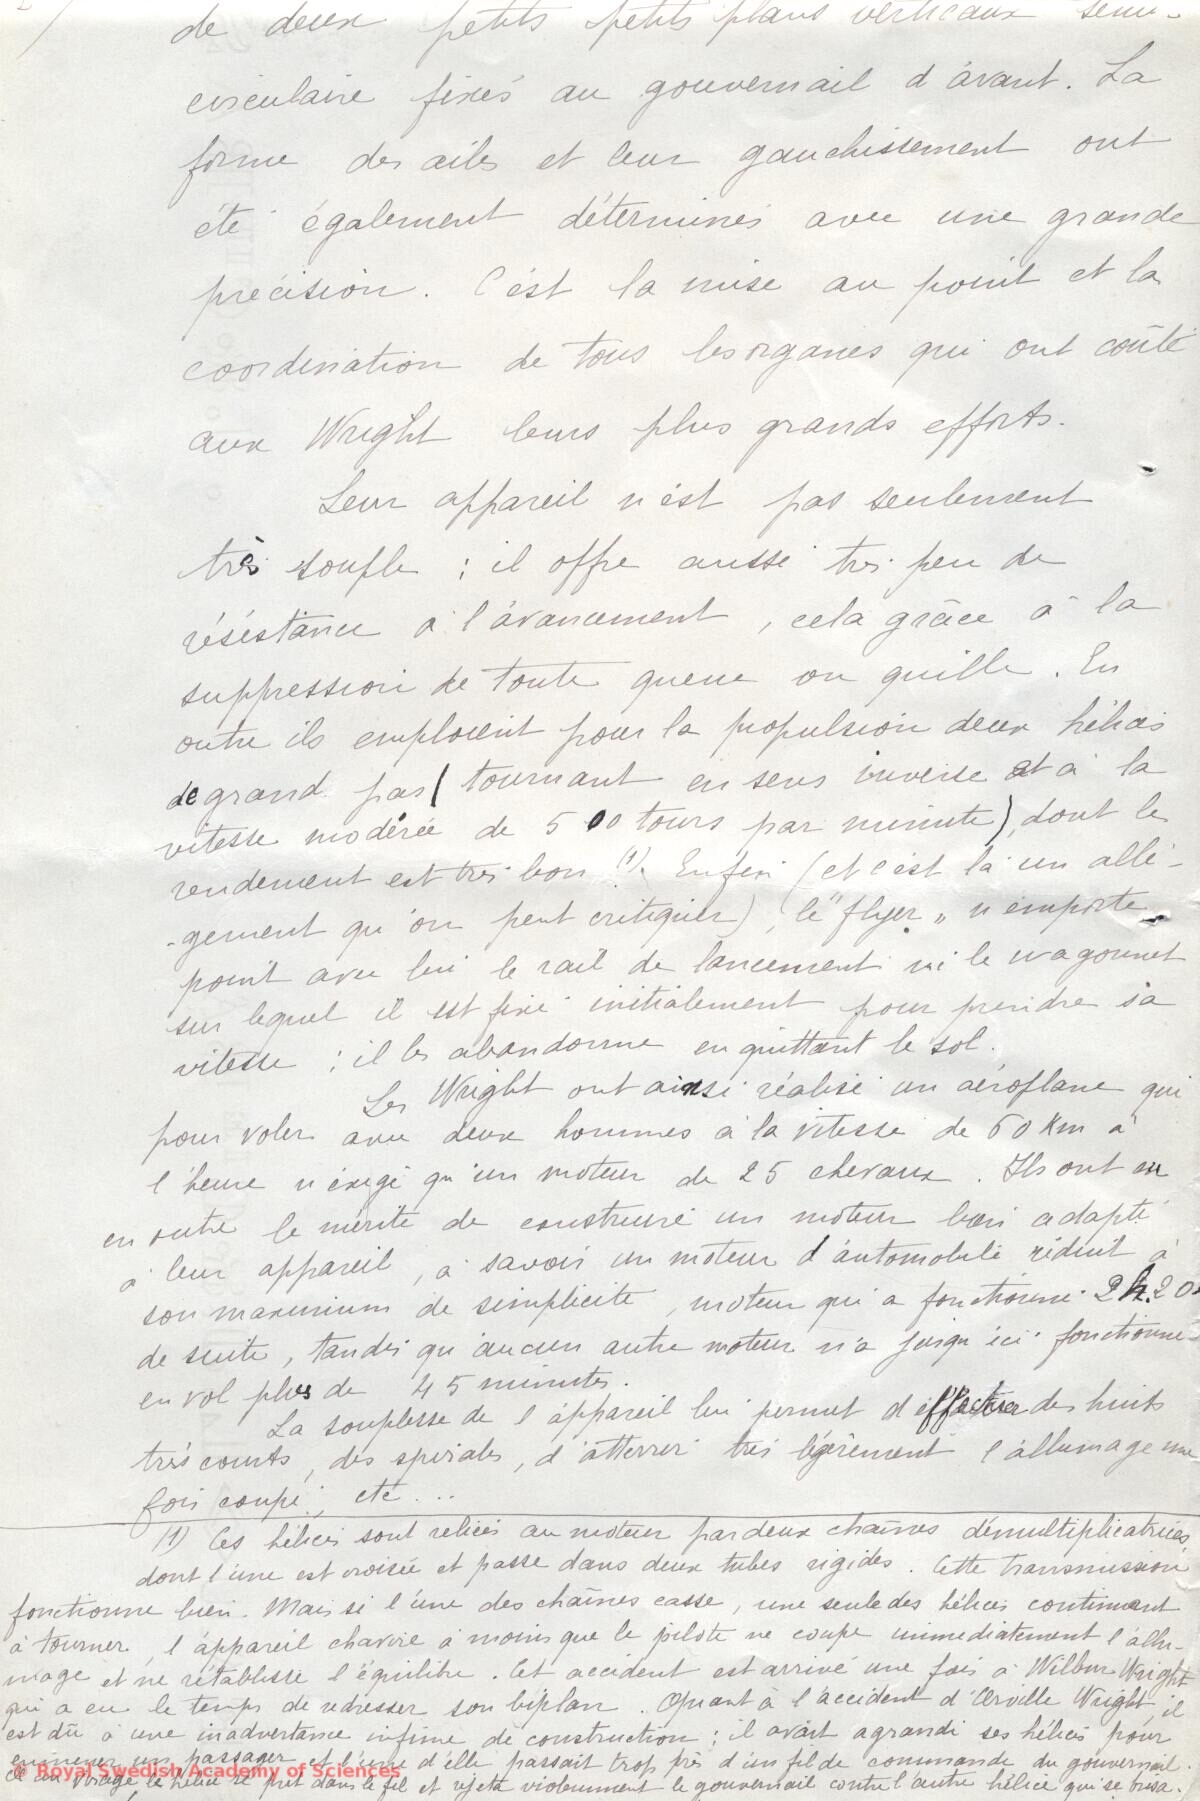 de deux petits petits plans verticaux semi-
circulaire fixés au gouvernail d'avant. La
forme des ailes et leur gauchissement ont
été également déterminés avec une grande
précision. C'est la mise au point et la
coordination de tous les organes qui ont coûté
aux Wright leurs plus grands efforts.
Leur appareil n'est pas seulement
très souple ; il offre aussi très peu de
résistance à l'avancement, cela grâce à la
suppression de toute queue ou quille. En
outre ils emploient pour la propulsion deux hélices
de grand pas (tournant en sens inverse et à la
vitesse modérée de 500 tours par minute), dont le
rendement est très bon (1). Enfin (et c'est là un allé-
-gement qu'on peut critiquer), le "flyer" n'emporte
point avec lui le rail de lancement ni le wagonnet
sur lequel il est fixé initialement pour prendre sa
vitesse ; il les abandonne en quittant le sol.
Les Wright ont ainsi réalisé un aéroplane qui
pour voler avec deux hommes à la vitesse de 60 Km à
l'heure n'exige qu'un moteur de 25 chevaux. Ils ont eu
en outre le mérite de construire un moteur bien adapté
à leur appareil, à savoir un moteur d'automobile réduit à
son maximum de simplicité, moteur qui a fonctionné 2h.20
de suite, tandis qu'aucun autre moteur n'a jusqu'ici fonctionné
en vol plus de 45 minutes.
La souplesse de l'appareil lui permet d'effectuer des huits
très courts, des spirales, d'atterrir très légèrement l'allumage une
fois coupé, etc ...
(1) Ces hélices sont reliées au moteur par deux chaînes démultiplicatrices,
dont l'une est croisée et passe dans deux tubes rigides. Cette transmission
fonctionne bien. Mais si l'une des chaînes casse, une seule des hélices continuant
à tourner, l'appareil chavire à moins que le pilote ne coupe immédiatement l'allu-
mage et ne rétablisse l'équilibre. Cet accident est arrivé une fois à Wilbur Wright
qui a eu le temps de redresser son biplan. Quant à l'accident d'Orville Wright, il
est dû à une inadvertance infime de construction ; il avait agrandi ses hélices pour
emmener un passager et l'une d'elle passait trop près d'un fil de commande du gouvernail.
© Royal Swedish Academy of Sciences
virage, le hélice se prit dans le fil et rejeta violemment le gouvernail contre l'autre hélice qui se brisa.